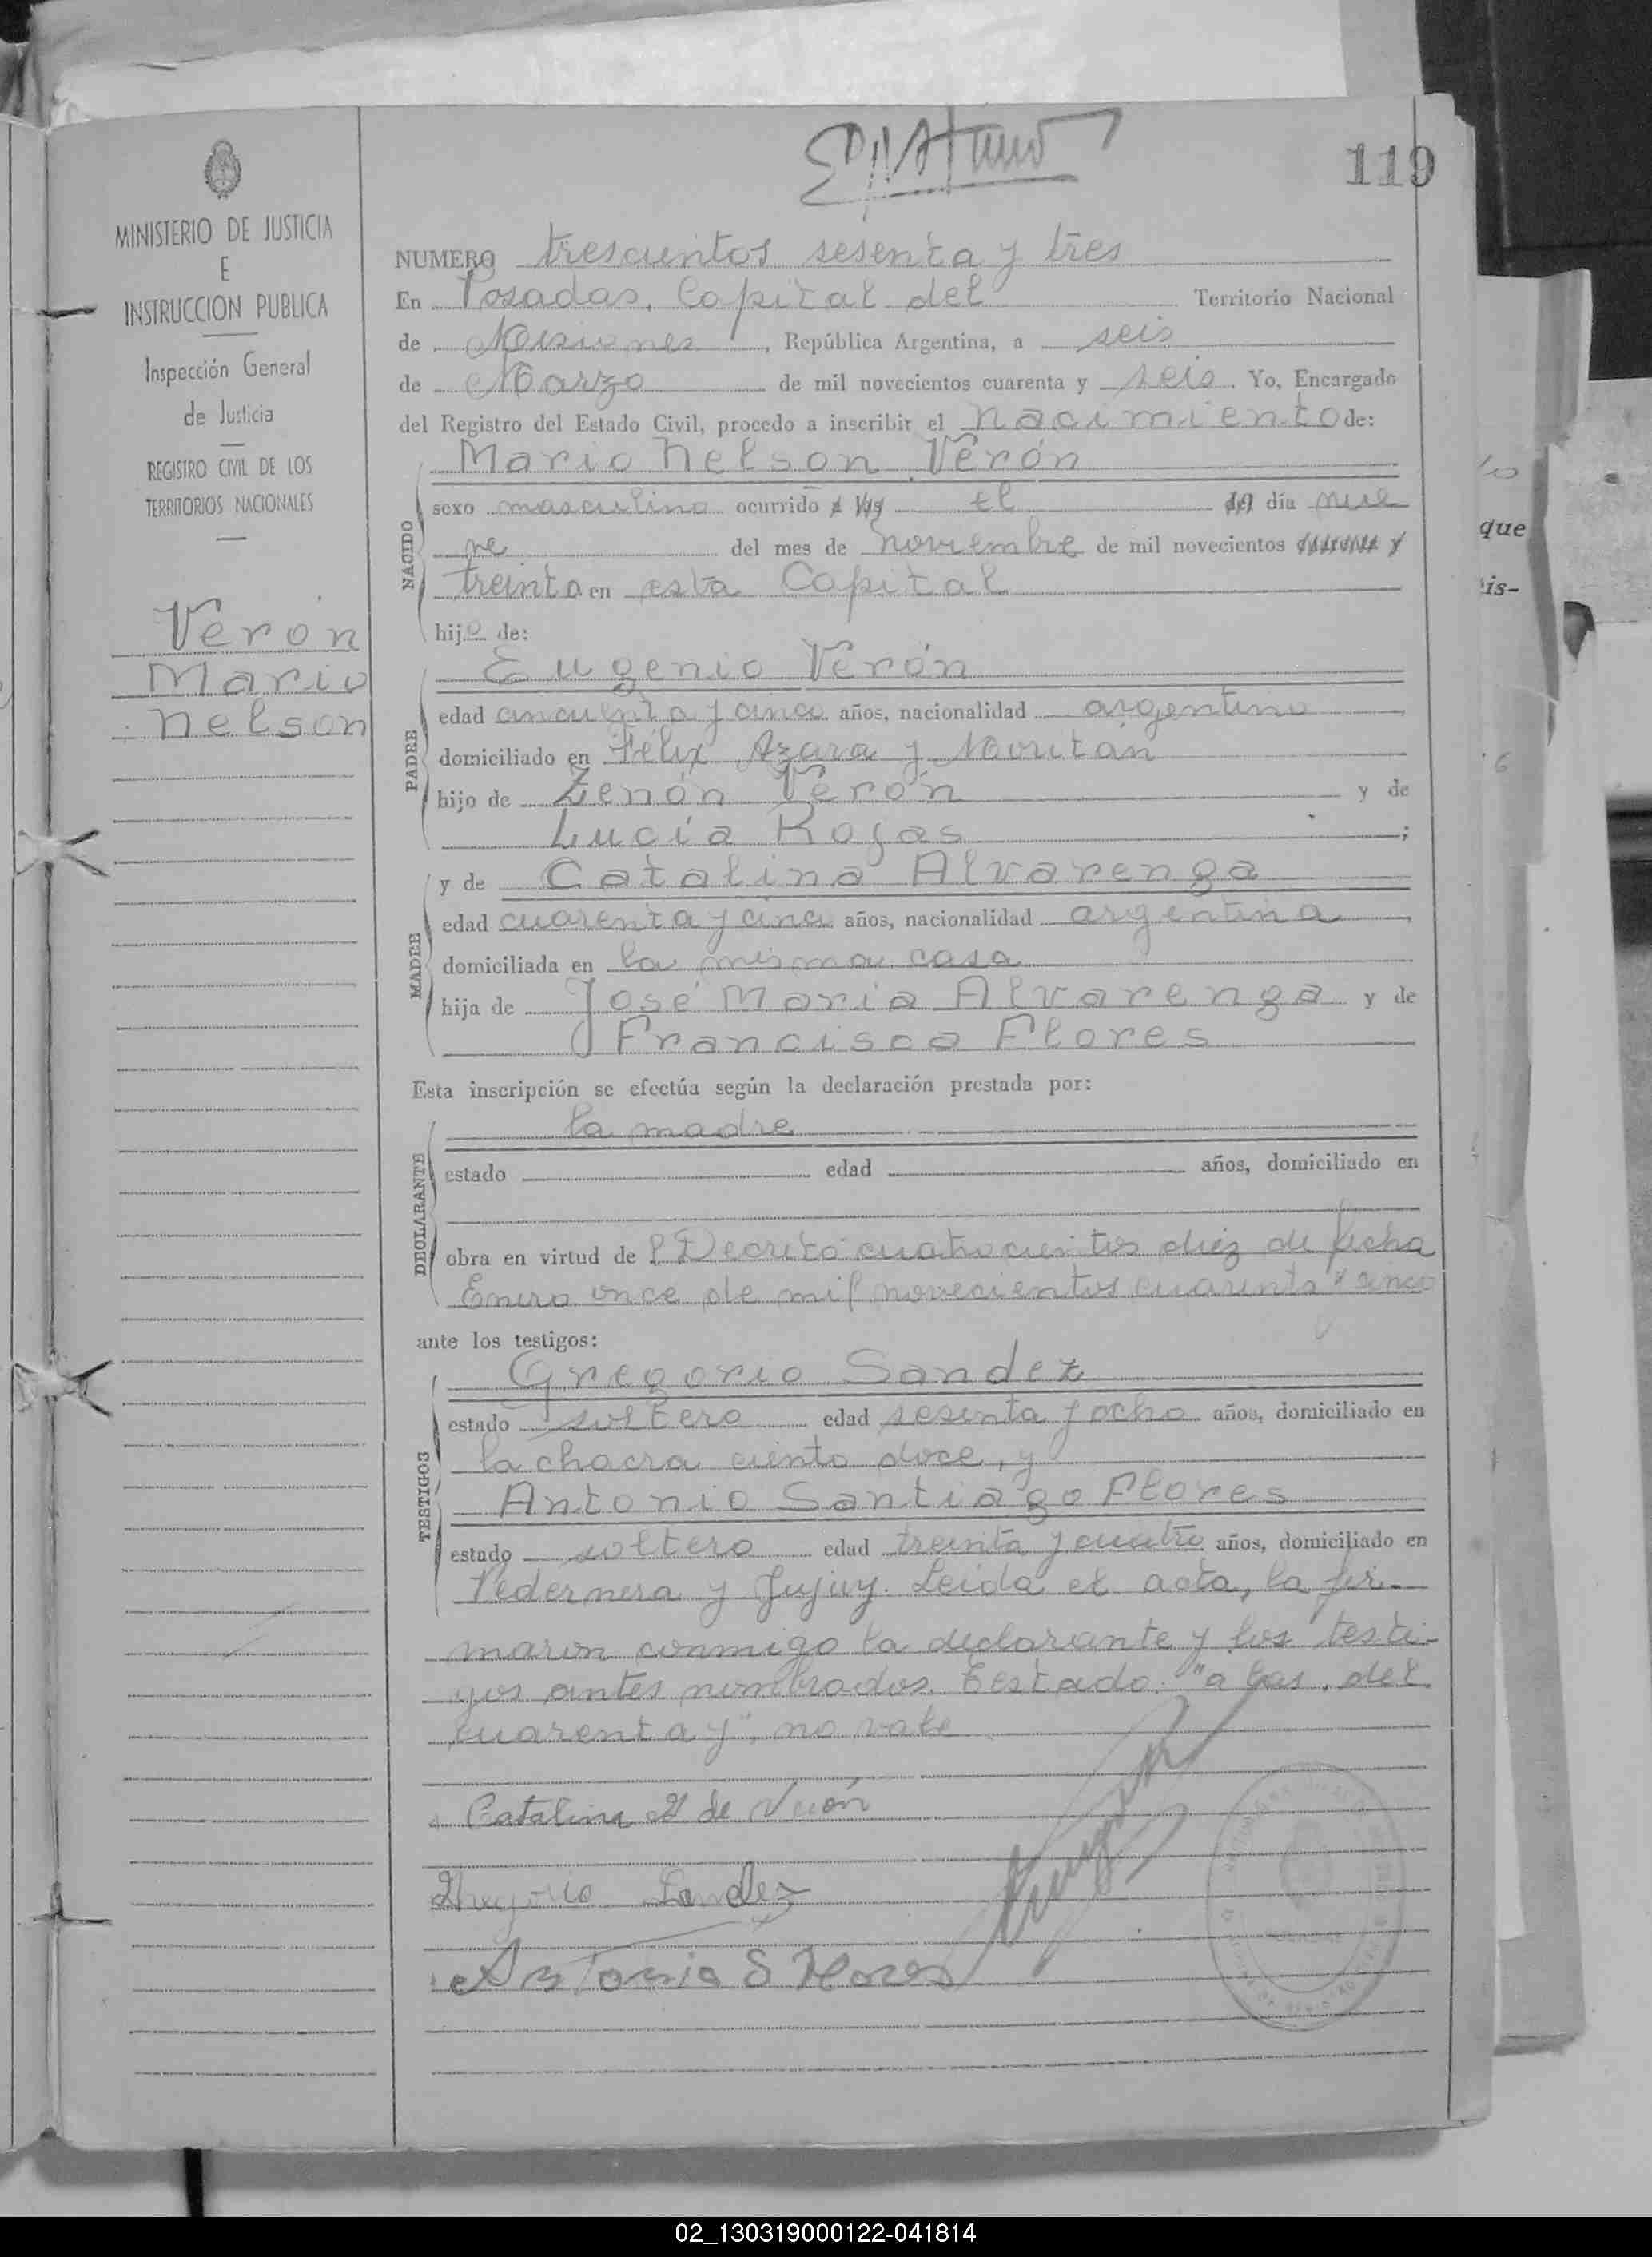 119
MINISTERIO DE JUSTICIA
E
INSTRUCCION PUBLICA
Inspección General
de Justicia
REGISTRO CIVIL DE LOS
TERRITORIOS NACIONALES
Verón
Mario
Nelson
NUMERO trescientos sesenta y tres
En Posadas, Capital del Territorio Nacional
de Misiones, República Argentina, a seis
de Marzo de mil novecientos cuarenta y seis. Yo, Encargado
del Registro del Estado Civil, procedo a inscribir el nacimiento de:
NACIDO
Mario Nelson Verón
sexo masculino ocurrido a las el del día nue
ve del mes de noviembre de mil novecientos cuarenta y
treinta en esta Capital
hijo de:
PADRE
Eugenio Verón
edad cincuenta y cinco años, nacionalidad argentino
domiciliado en Félix Azara y Moritán
hijo de Zenón Verón y de
Lucía Rojas ;
MADRE
y de Catalina Alvarenga
edad cuarenta y cinco años, nacionalidad argentina
domiciliada en la misma casa
hija de José María Alvarenga y de
Francisca Flores
Esta inscripción se efectúa según la declaración prestada por:
DECLARANTE
la madre
estado edad años, domiciliado en
obra en virtud de l Decreto cuatrocientos diez de fecha
Enero once de mil novecientos cuarenta y cinco
ante los testigos:
TESTIGOS
Gregorio Sandez
estado soltero edad sesenta y ocho años, domiciliado en
la chacra ciento doce, y
Antonio Santiago Flores
estado soltero edad treinta y cuatro años, domiciliado en
Pedernera y Jujuy. Leida el acta, la fir-
maron conmigo la declarante y los testi-
gos antes nombrados. Testado: "a las, del
cuarenta y", no vale
Catalina A de Verón
Gregorio Sandez
Antonio S Flores
que
is-
02_130319000122-041814